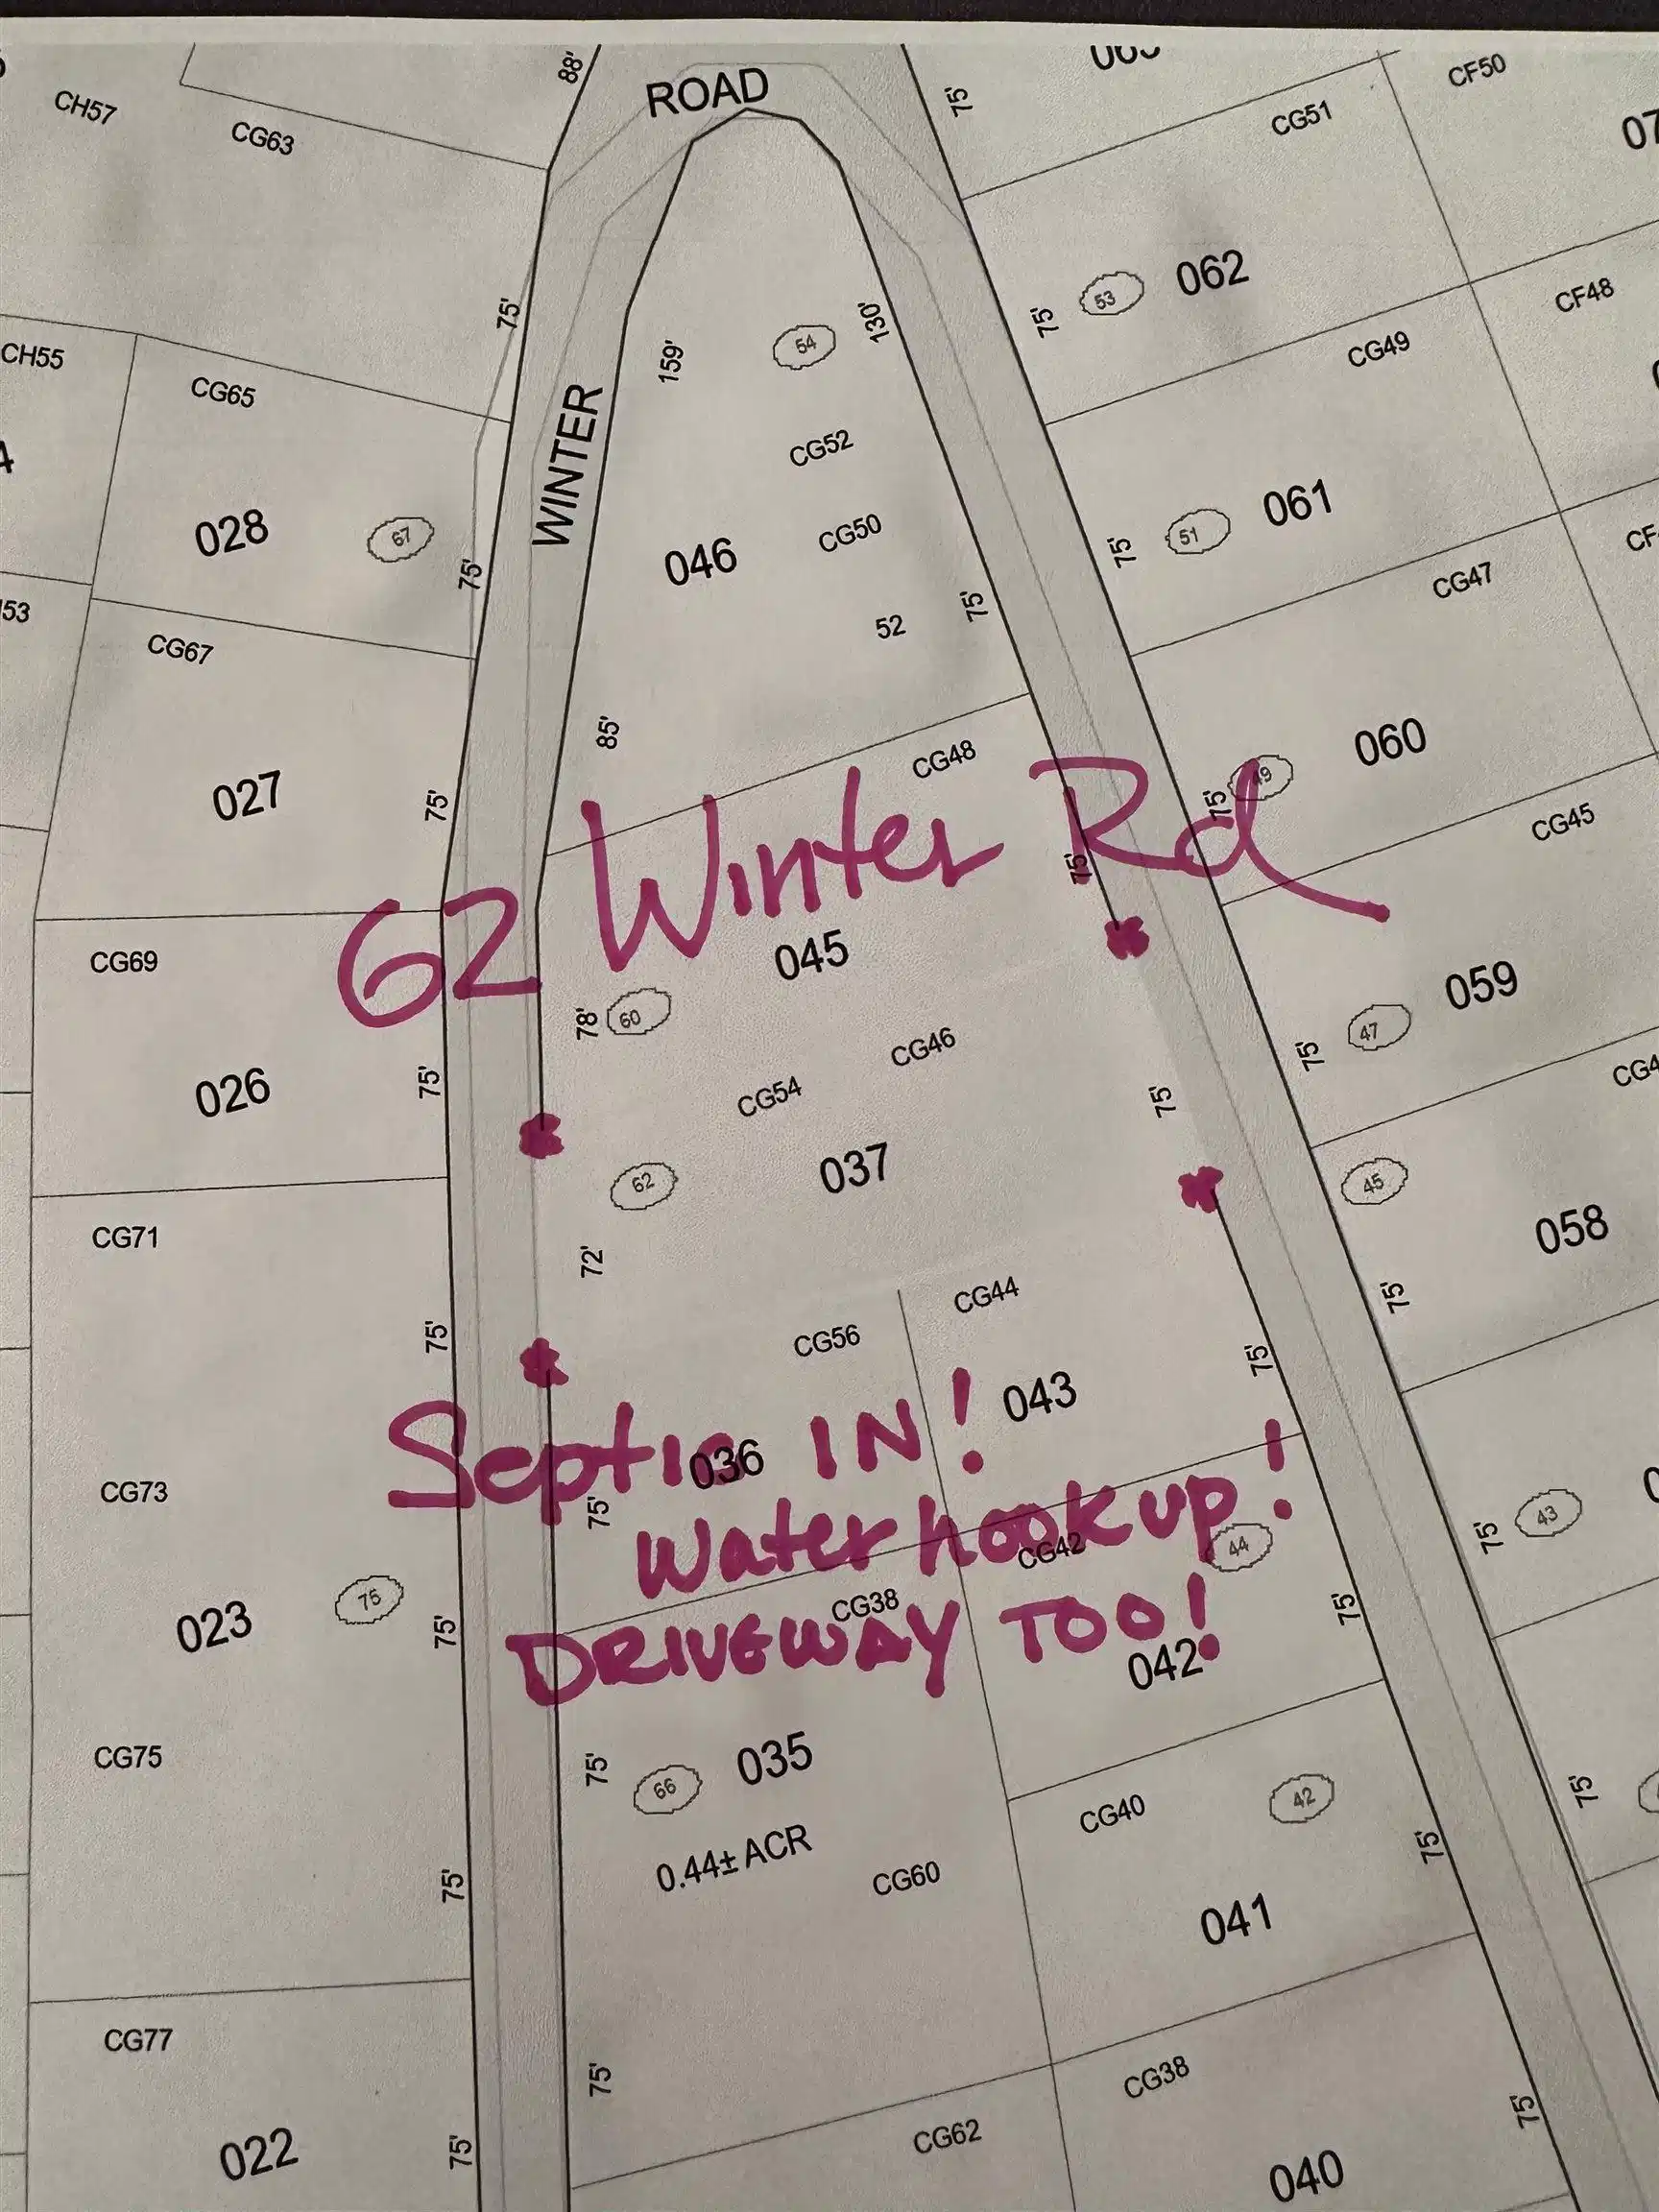 88'
ROAD
75'
CF50
CH57
CG63
CG51
062
53
75'
75'
CF48
CH55
CG65
159'
54
130'
CG49
WINTER
CG52
028
67
75'
046
CG50
75'
51
061
52
75'
CG47
CG67
85'
CG48
027
75'
49
75'
060
CG45
62 Winter Rd
75'
045
CG69
78'
60
CG46
47
059
75'
026
75'
CG54
75'
62
037
45
058
CG71
72'
CG44
75'
75'
CG56
75'
043
Septic IN!
036
CG73
75'
Water hookup!
CG42
44
43
75'
023
75
75'
CG38
DRIVEWAY TOO!
75'
042
CG75
75'
66
035
0.44± ACR
CG40
42
75'
75'
75'
CG60
041
CG77
75'
CG38
75'
022
75'
CG62
040